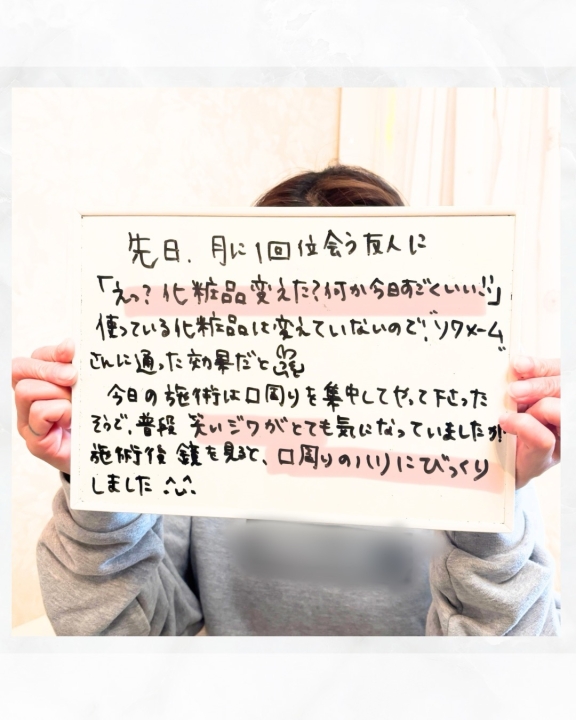 先日、月に1回位会う友人に
「えっ?化粧品変えた?何か今日すごくいい!!」
使っている化粧品は変えていないので、ソワメーム
さんに通った効果だと
今日の施術は口周りを集中してやって下さった
そうで、普段 笑いジワがとても気になっていましたが
施術後 鏡を見ると、口周りのハリにびっくり
しました